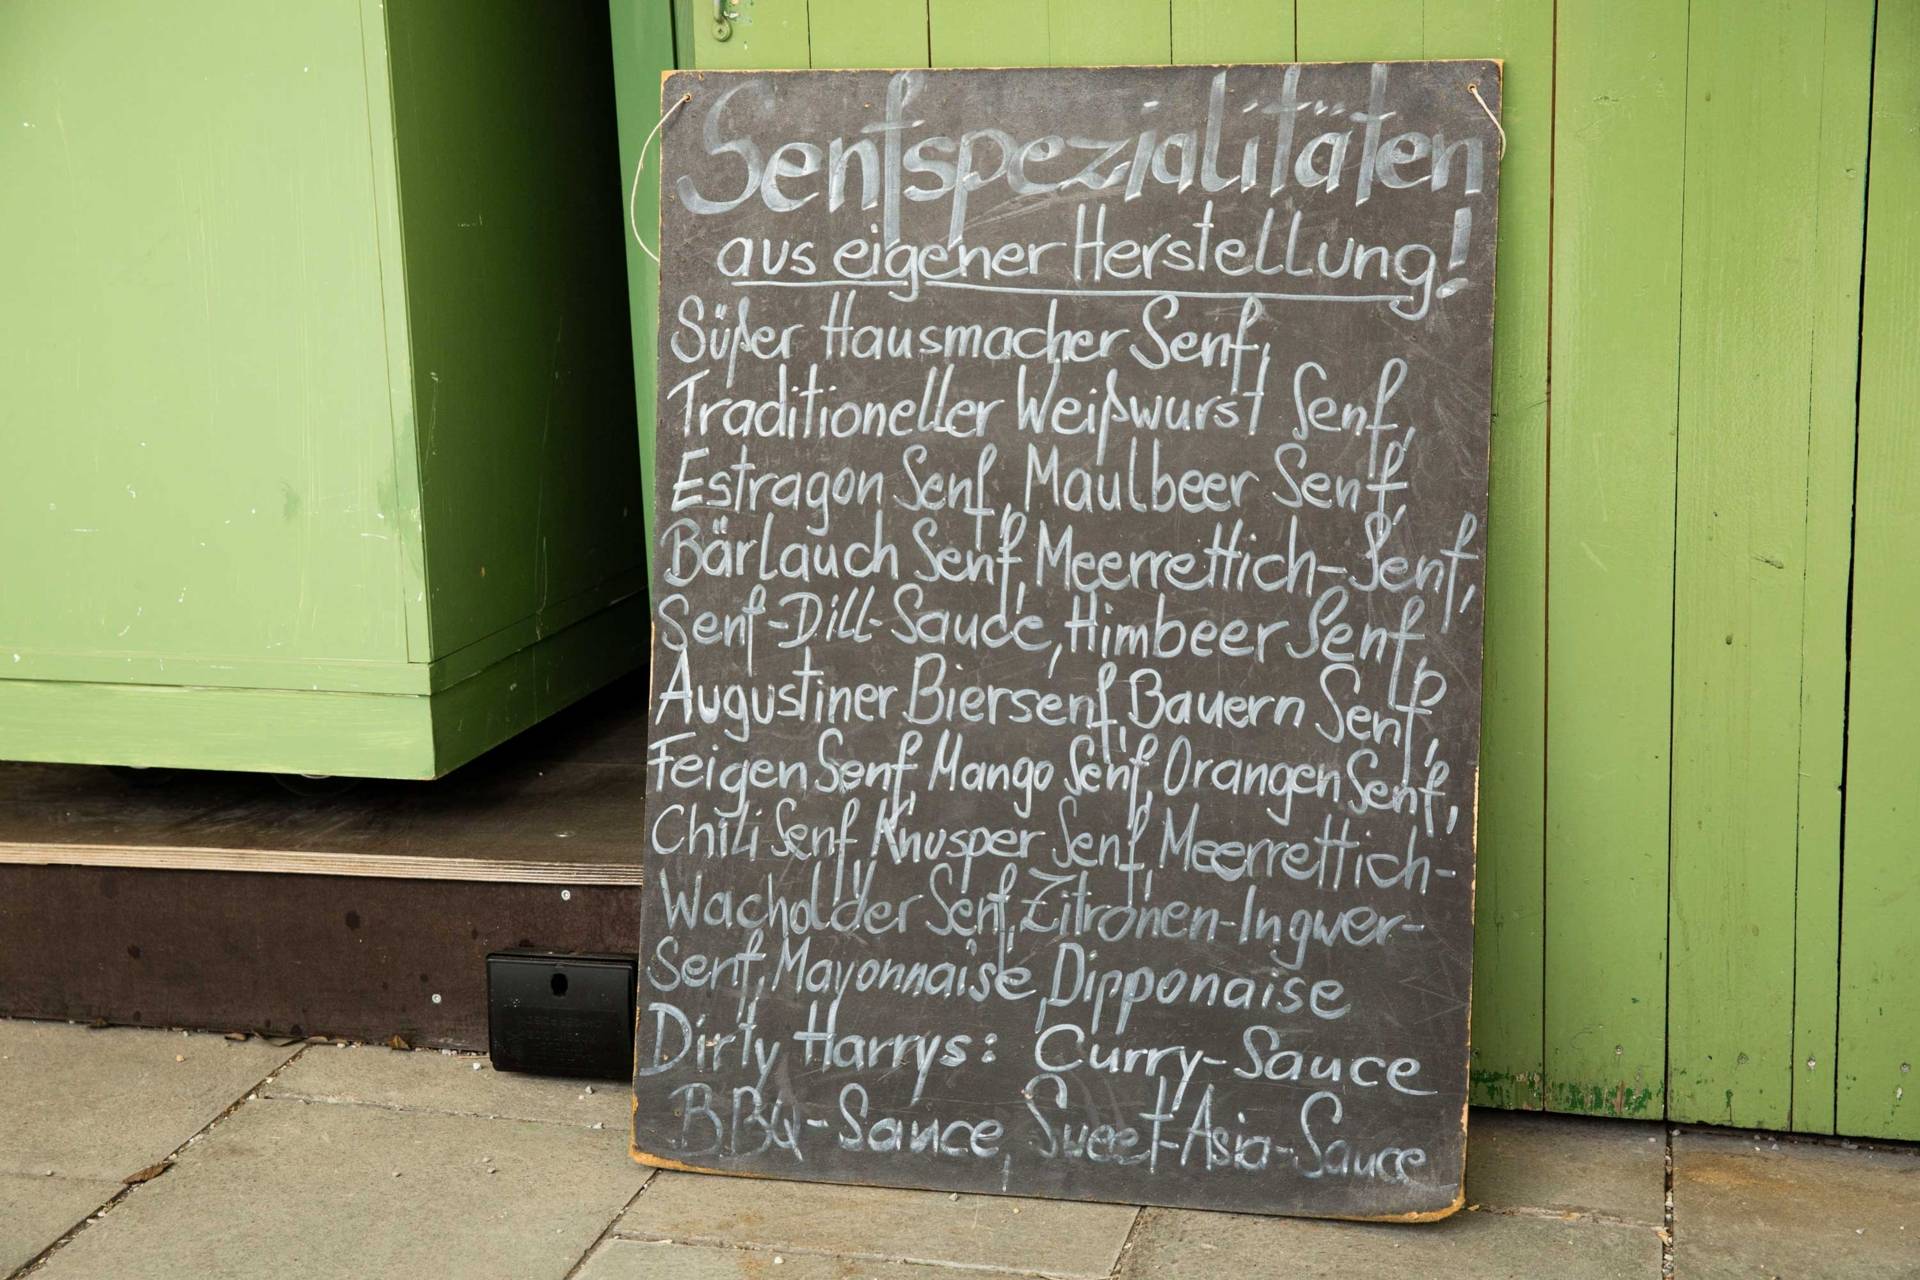 Senfspezialitäten
aus eigener Herstellung!
Süßer Hausmacher Senf,
Traditioneller Weißwurst Senf,
Estragon Senf, Maulbeer Senf,
Bärlauch Senf, Meerrettich-Senf,
Senf-Dill-Sauce, Himbeer Senf,
Augustiner Biersenf, Bauern Senf,
Feigen Senf, Mango Senf, Orangen Senf,
Chili Senf, Knusper Senf, Meerrettich-
Wacholder Senf, Zitronen-Ingwer-
Senf, Mayonnaise, Dipponaise
Dirty Harrys: Curry-Sauce
BBQ-Sauce, Sweet-Asia-Sauce